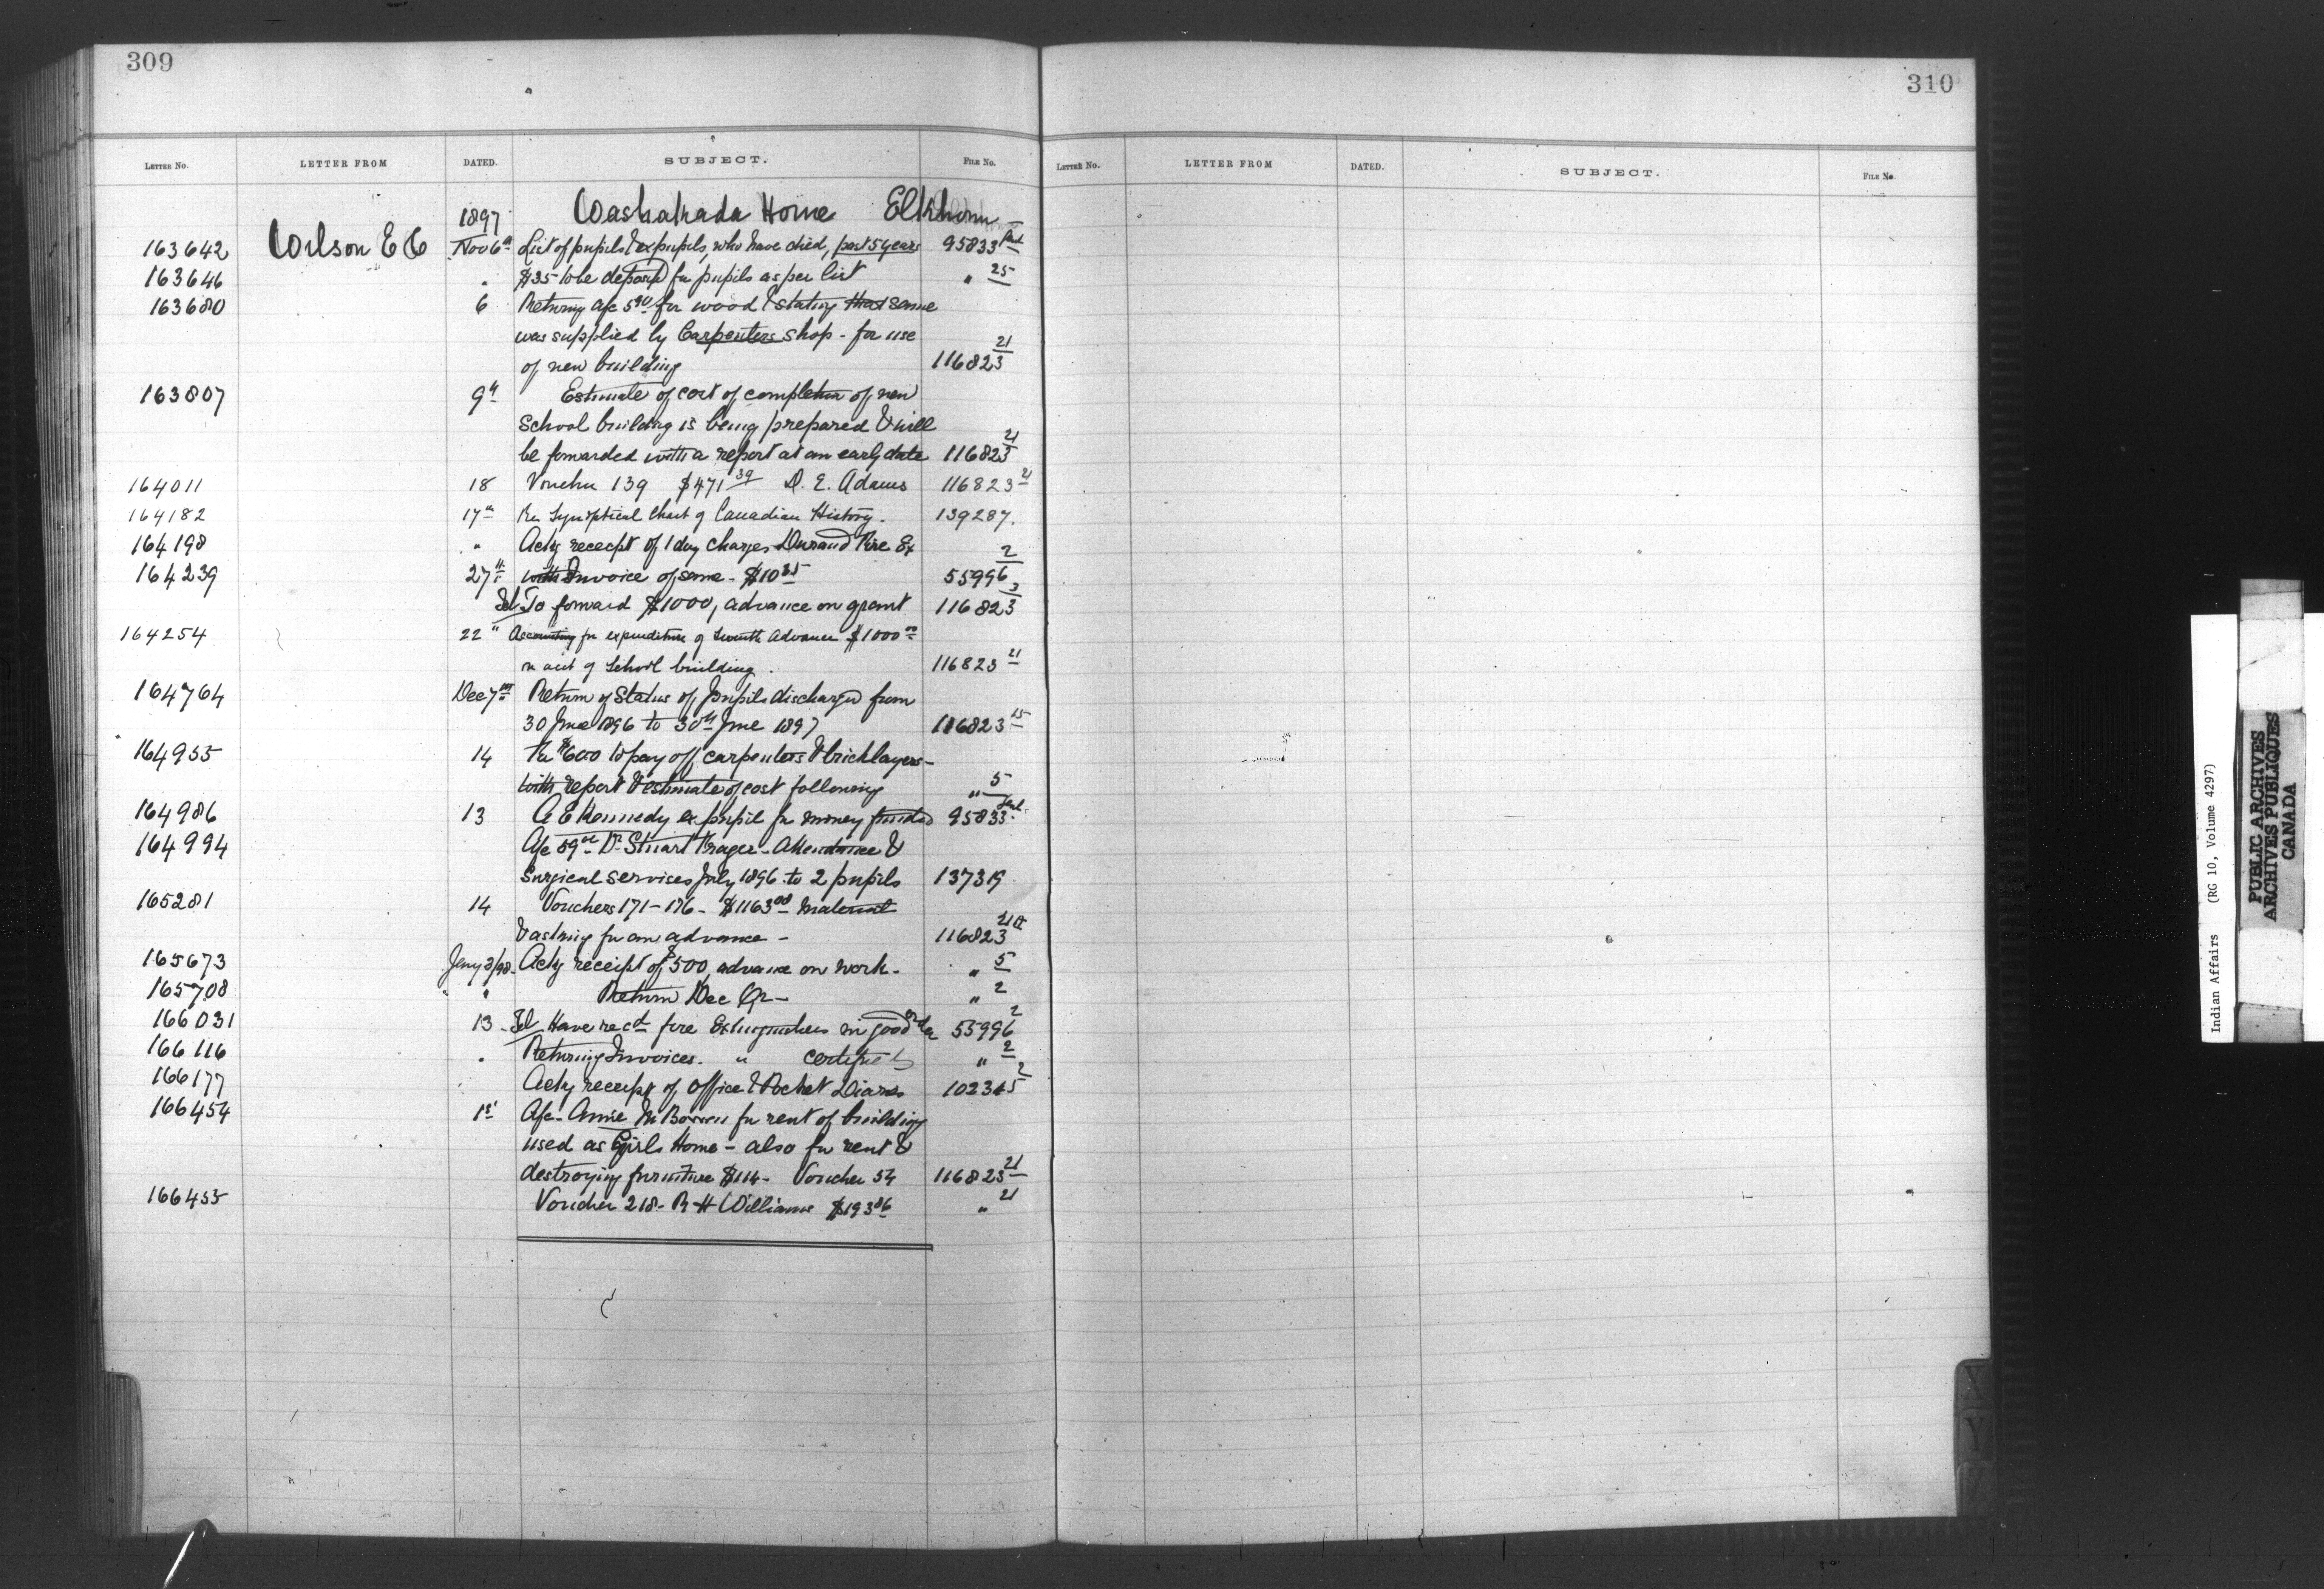 309
LETTER No. LETTER FROM DATED. SUBJECT. FILE No.
1897 Washakada Home Elkhorn
163642 Wilson E C Nov 6th List of pupils & expupils, who have died, past 5 years 95833
163646 " $35 to be deposd for pupils as per list " 25
163680 6 Returng a/c 5.90 for wood & stating that same
was supplied by Carpenters shop - for use
of new building 116823 21
163807 9th Estimate of cost of completion of new
School building is being prepared & will
be forwarded with a report at an early date 116823 21
164011 18 Voucher 139 $471 39 D. E. Adams 116823 21
164182 17th Re Synoptical Chart of Canadian History. 139287.
164198 " Ackg receipt of 1 day charges Durand Fire Ex
164239 27th with Invoice of same - $10 35 55996 2
Tel To forward $1000, advance on grant 116823 3
164254 22 " Accounting for expenditure of seventh advance $1000 00
on acct of School building. 116823 21
164764 Dec 7th Return of Status of pupils discharged from
30 June 1896 to 30th June 1897 116823 15
164955 14 Re $600 to pay off carpenters & bricklayers -
with report & estimate of cost following " 5
164986 13 A E Kennedy expupil for money funded 95833
164994 A/c 59 00 Dr Stuart Frager - Attendance &
Surgical services July 1896 to 2 pupils 137319
165281 14 Vouchers 171-176 - $1163 00 Material
& asking for an advance - 116823 21
165673 Jany 3/98 Ackg receipt of $500, advance on work - " 5
165708 " " Return Dec Qr - " 2
166031 13 Tel Have recd fire Extinguishers in good order 55996 2
166116 " Returning Invoices. " certified " 2
166177 Ackg receipt of Office & Pocket Diaries 102345 2
166454 1st A/c - Annie M for rent of building
used as Girls Home - also for rent &
destroying furniture $114 - Voucher 54 116823 21
166455 Voucher 218 - R H Williams $193 86 " 21
310
LETTER No. LETTER FROM DATED. SUBJECT. FILE No.
X
Y
Z
Indian Affairs (RG 10, Volume 4297)
PUBLIC ARCHIVES
ARCHIVES PUBLIQUES
CANADA